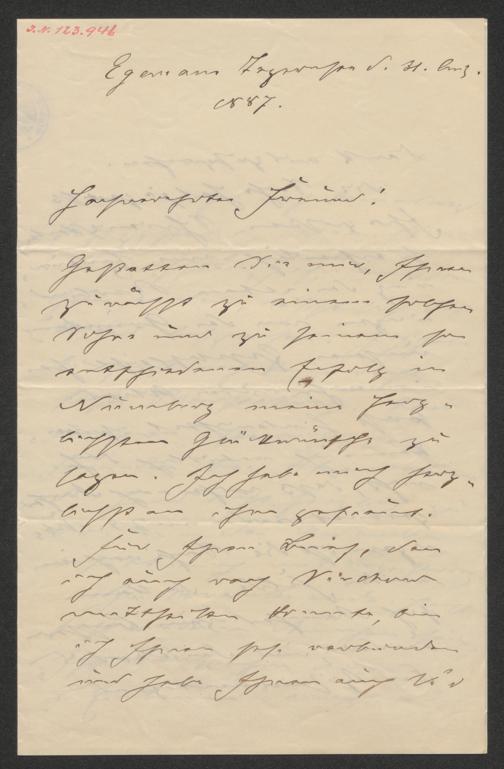 J.N. 123.946
Egern am Tegernsee d. 31. Aug.
1887.
Hochverehrter Freund!
Gestatten Sie mir, Ihnen
zunächst zu einem solchen
Sohne und zu seinem so
entschiedenen Erfolg in
Nürnberg meine herz-
lichsten Glückwünsche zu
sagen. Ich habe mich herz-
lichst an ihm gefreut.
Für Ihren Brief, den
ich auch nach
mittheilen konnte, bin
ich Ihnen sehr verbunden
und habe Ihnen auch